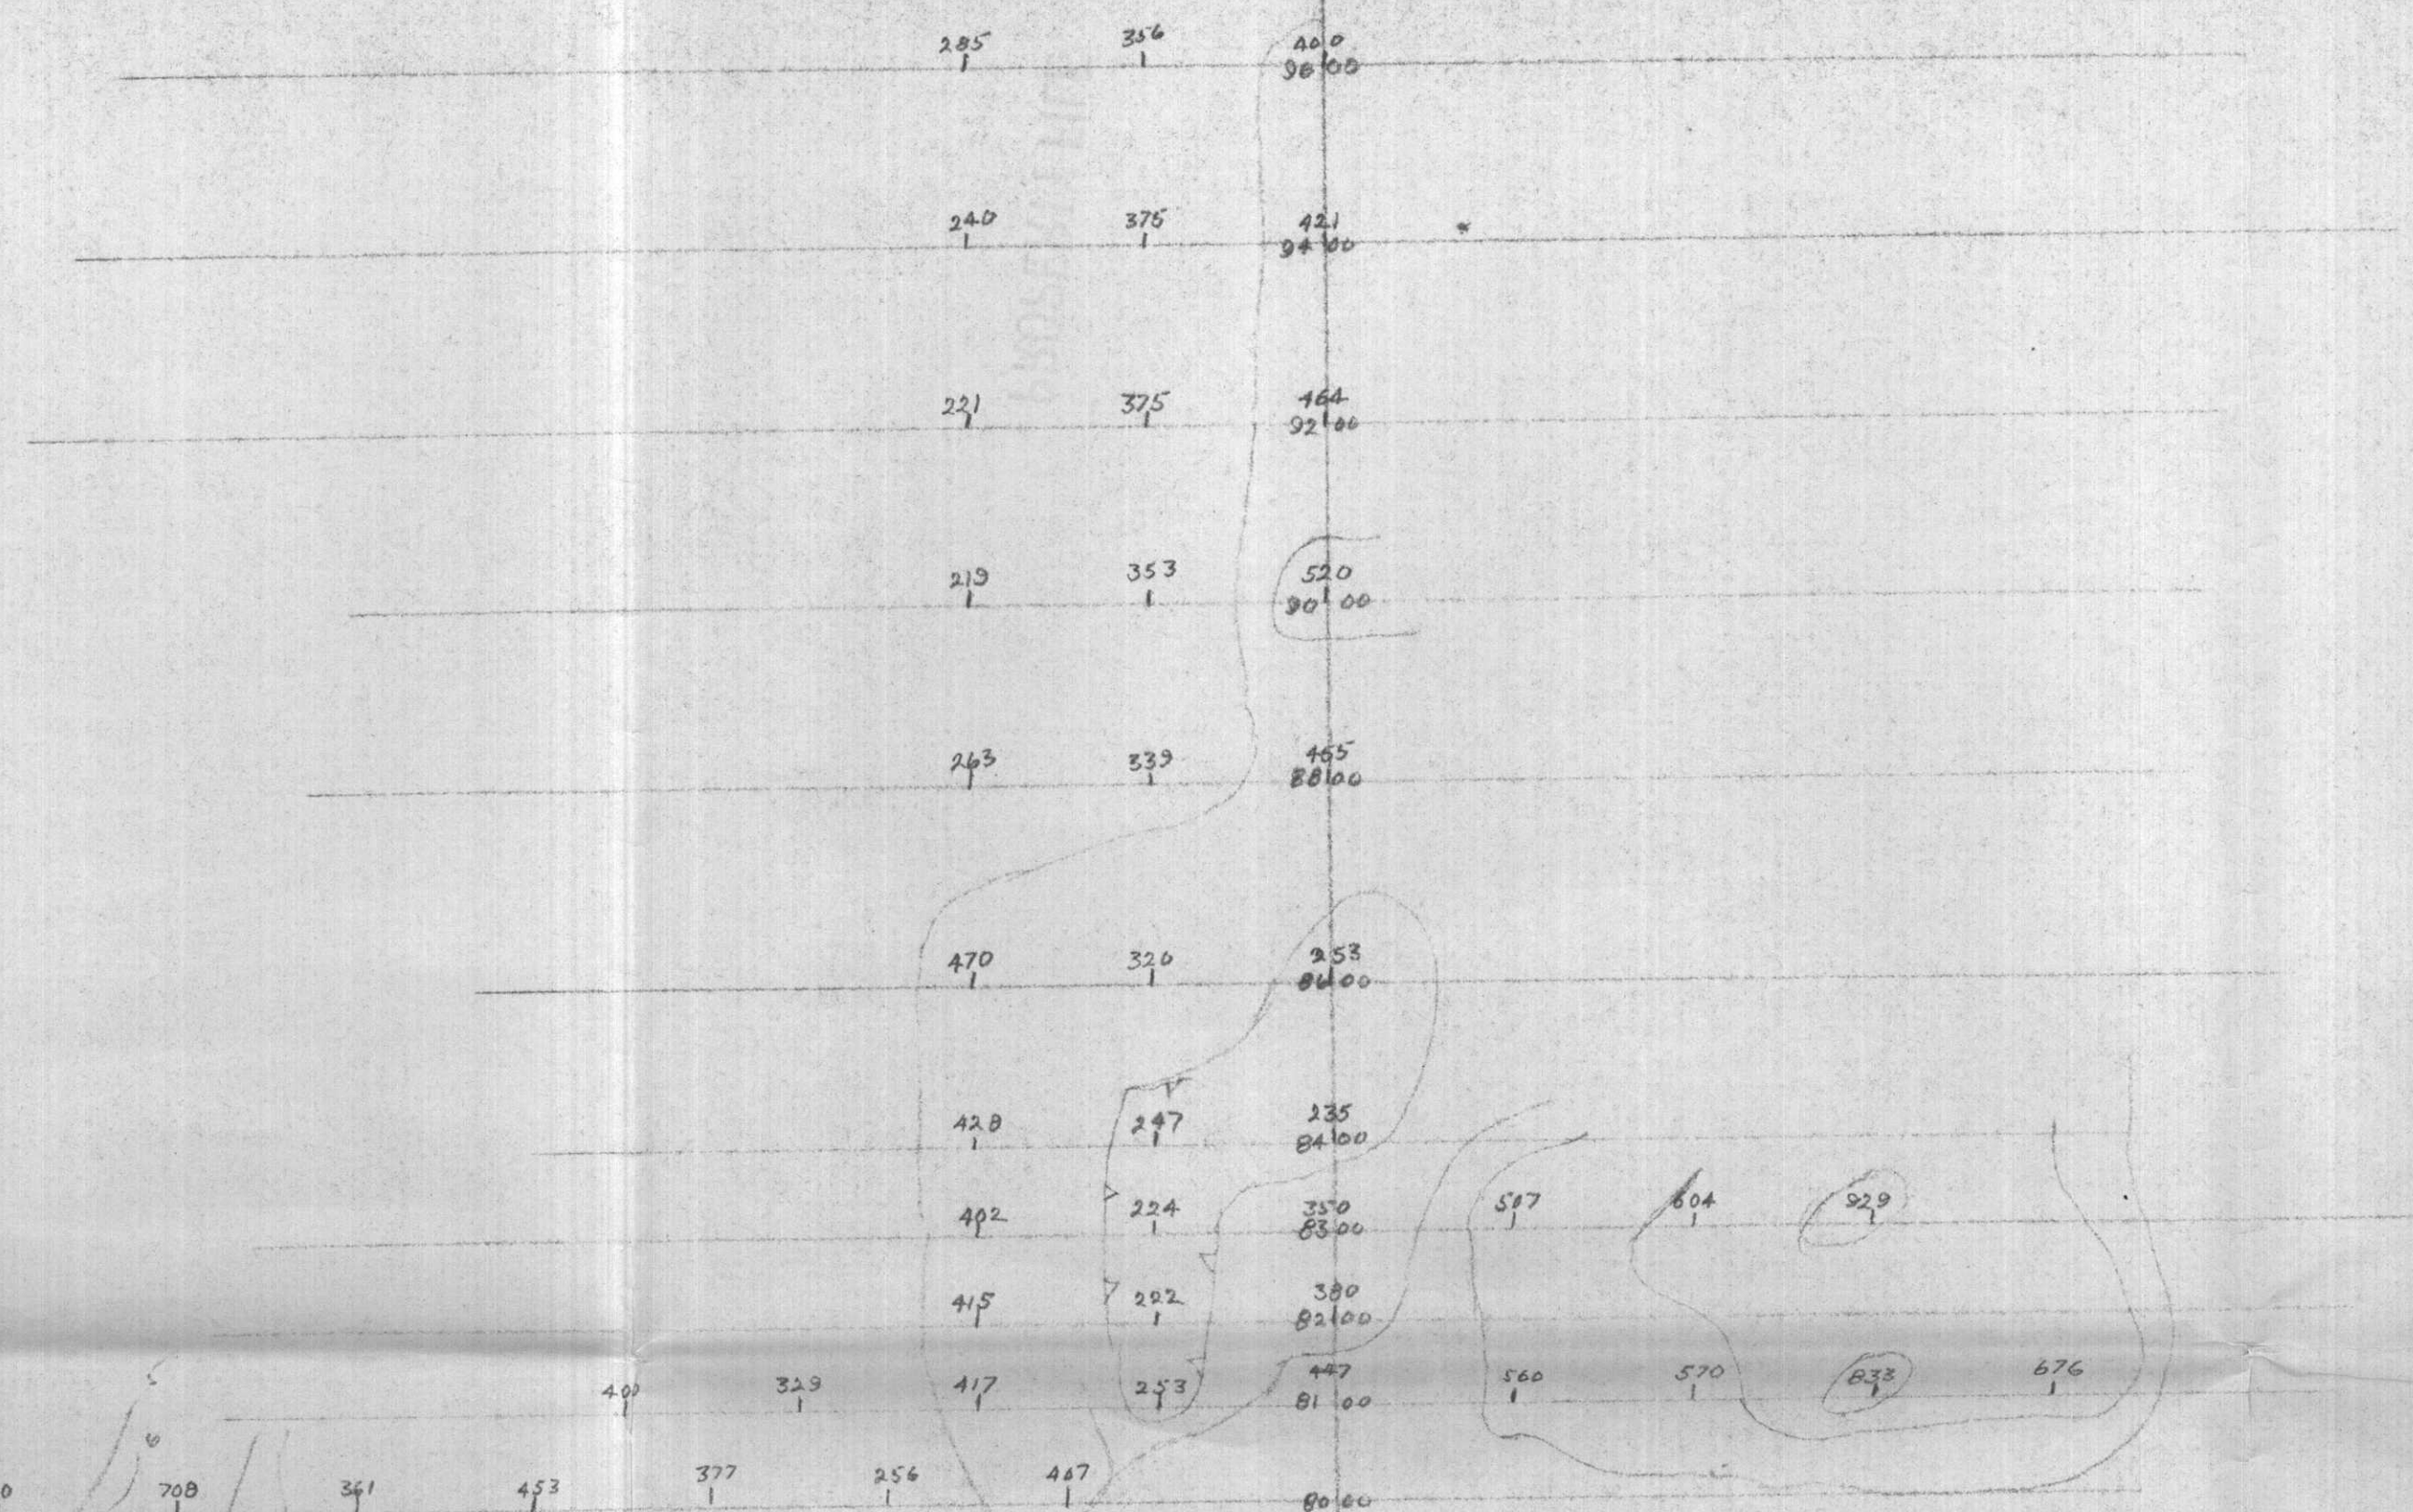 285 356 400
96 00
240 375 421
94 00
221 375 464
92 00
219 353 520
90 00
263 339 455
88 00
470 326 253
86 00
428 247 235
84 00
402 224 350 507 604 929
83 00
415 222 380
82 00
400 329 417 253 447 560 570 833 676
81 00
6
708 361 453 377 256 467
80 00